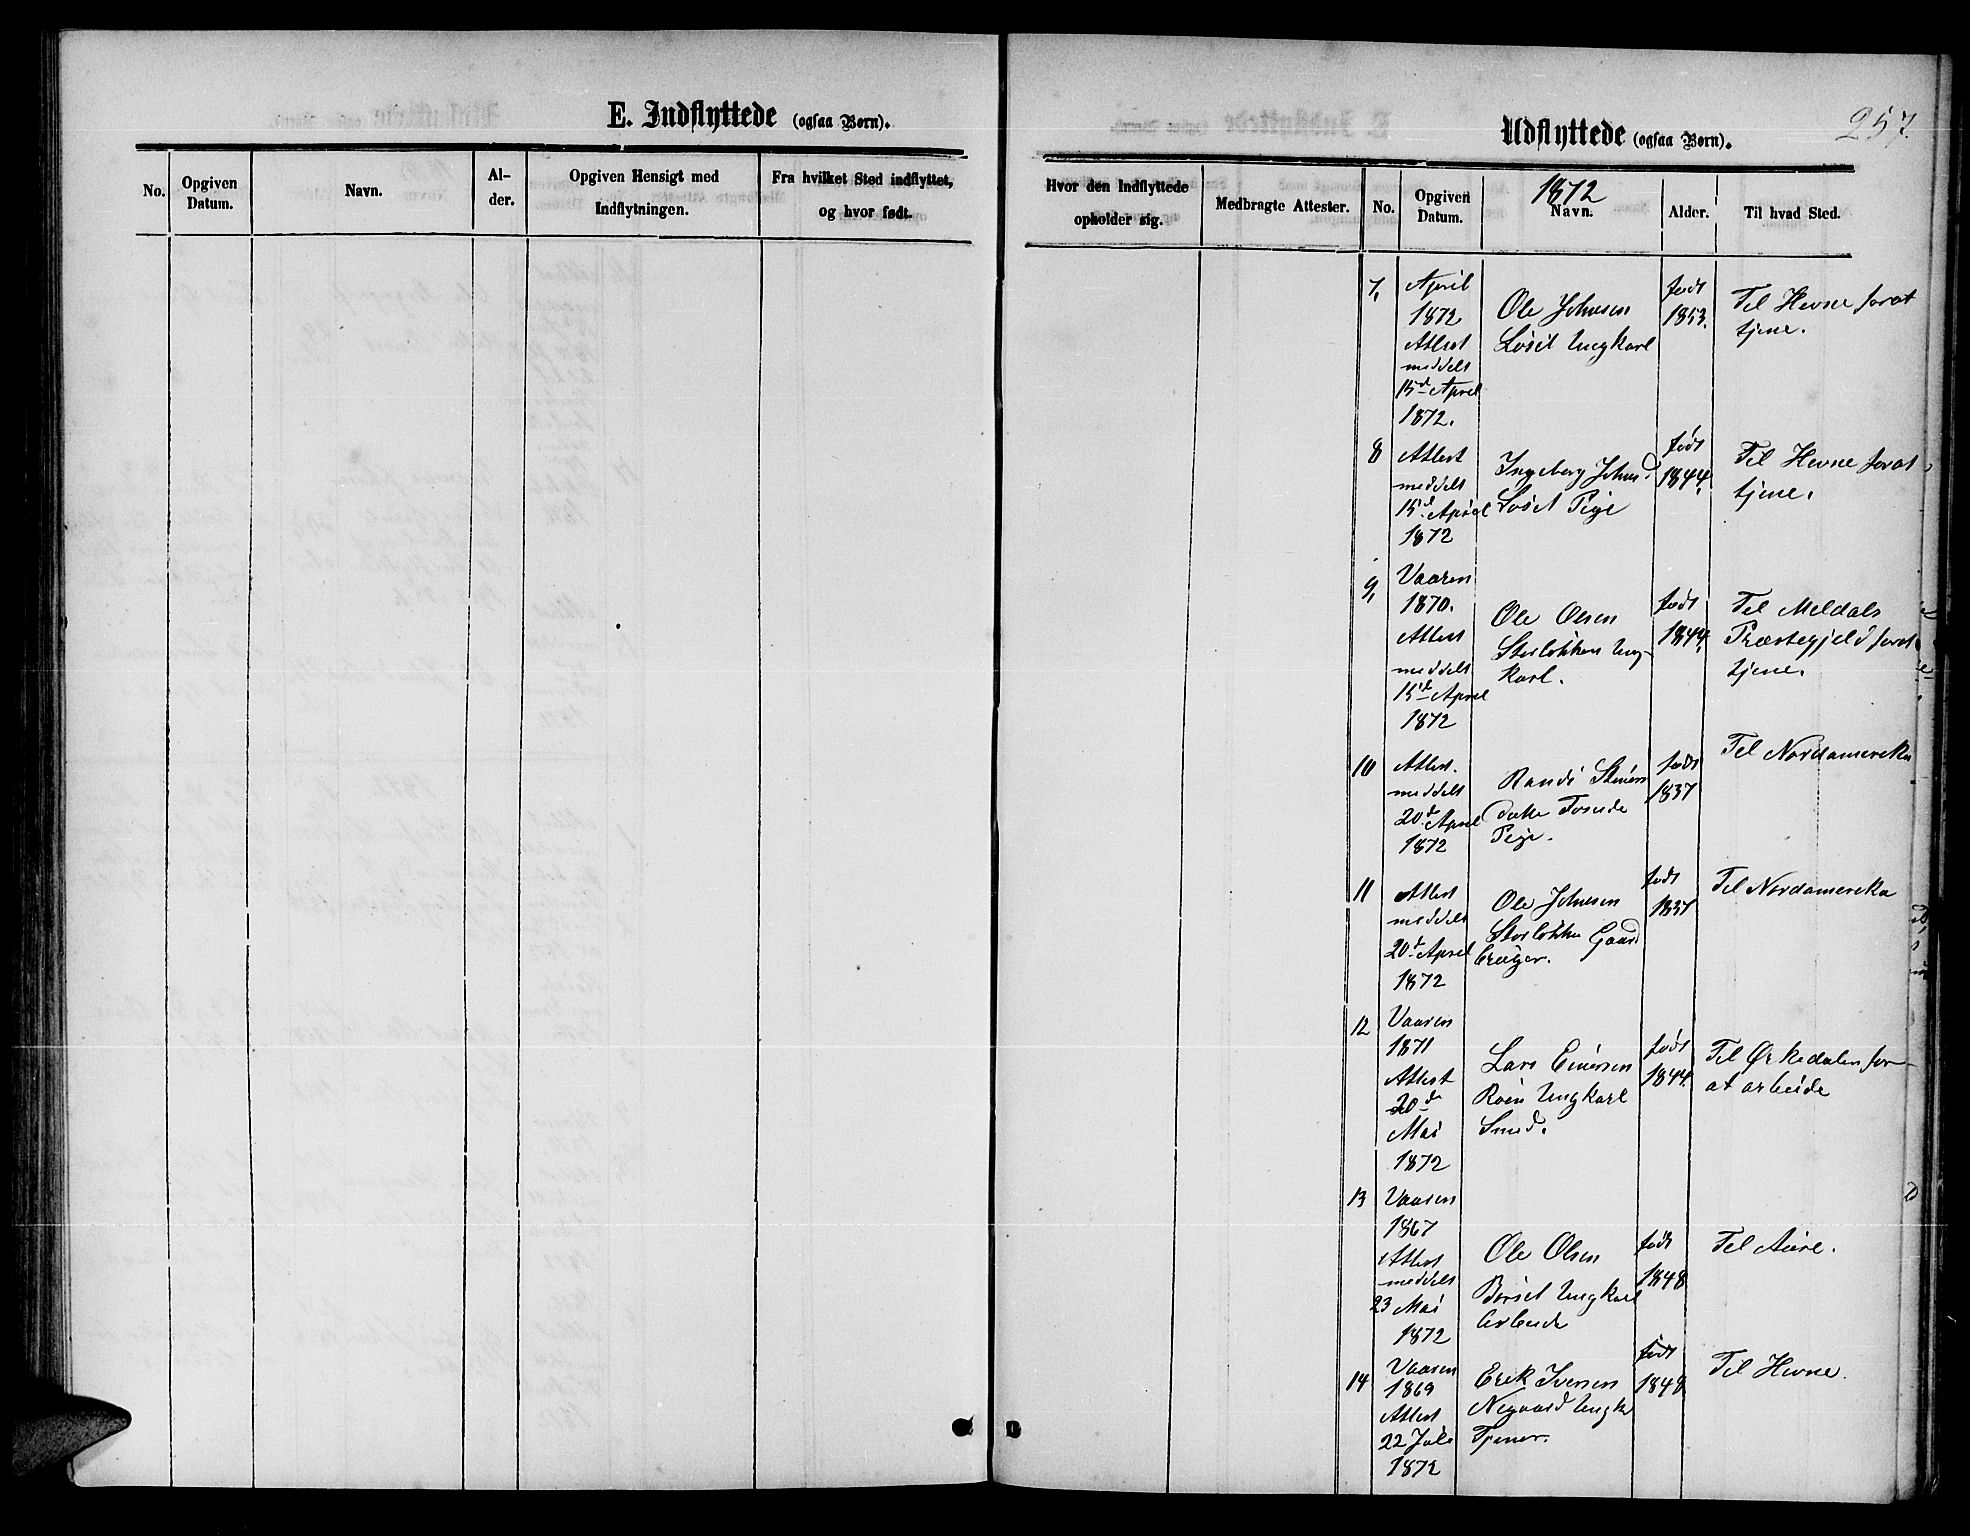 E. Indflyttede (ogsaa Børn).
No.
Opgiven Datum.
Navn.
Al-
der.
Opgiven Hensigt med
Indflytningen.
Fra hvilket Sted indflyttet,
og hvor født.
257.
Udflyttede (ogsaa Børn).
Hvor den Indflyttede
opholder sig.
Medbragte Attester.
No.
Opgiven
Datum.
1872
Navn.
Alder.
Til hvad Sted.
7,
April
1872
Attest
meddelt
15d April
1872.
Ole Johnsen
Løset Ungkarl
født
1853.
Til Hevne forat
tjene.
8
Attest
meddelt
15d April
1872
Ingeborg Johnsd
Løset Pige
født
1844.
Til Hevne forat
tjene.
9,
Vaaren
1870.
Attest
meddelt
15de April
1872
Ole Olsen
Storløkken Ung-
karl.
født
1844.
Til Meldals
Præstegjeld forat
tjene.
10
Attest.
meddelt
20de April
1872
Randi
Pige.
født
1837
Til Nordamerika
11
Attest
meddelt
20d April
1872
Ole Johnsen
Storløkken Gaard
bruger.
født
1837
Til Nordamerika
12
Vaaren
1871
Attest
20de
Mai
1872
Lars Einersen
Røen Ungkarl
Smed.
født
1844.
Til Ørkedalen for
at arbeide
13
Vaaren
1867
Attest
meddelt
23 Mai
1872
Ole Olsen
Børset Ungkarl
Arbeide
født
1848
Til Aure.
14
Vaaren
1869
Attest
22 Juli
1872
Erik Iversen
Negaard Ungk
Tjener.
født
1848
Til Hevne.